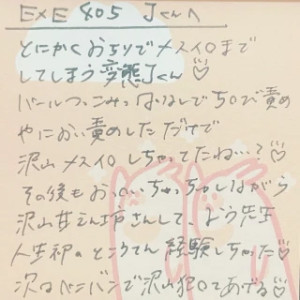 EXE 405 Jくんへ
とにかくおちりでメスイロまで
してしまう変態Jくん♡
パールつっこみっぱなしで ちロび責め
やにおい責めしただけで
沢山メスイロしちゃってたね…?♡
その後もおっ○いちゅっちゅしながら
沢山甘えん坊さんして、よう先生
人生初のところてん経験しちゃった♡
次はペニバンで沢山犯○てあげる♡